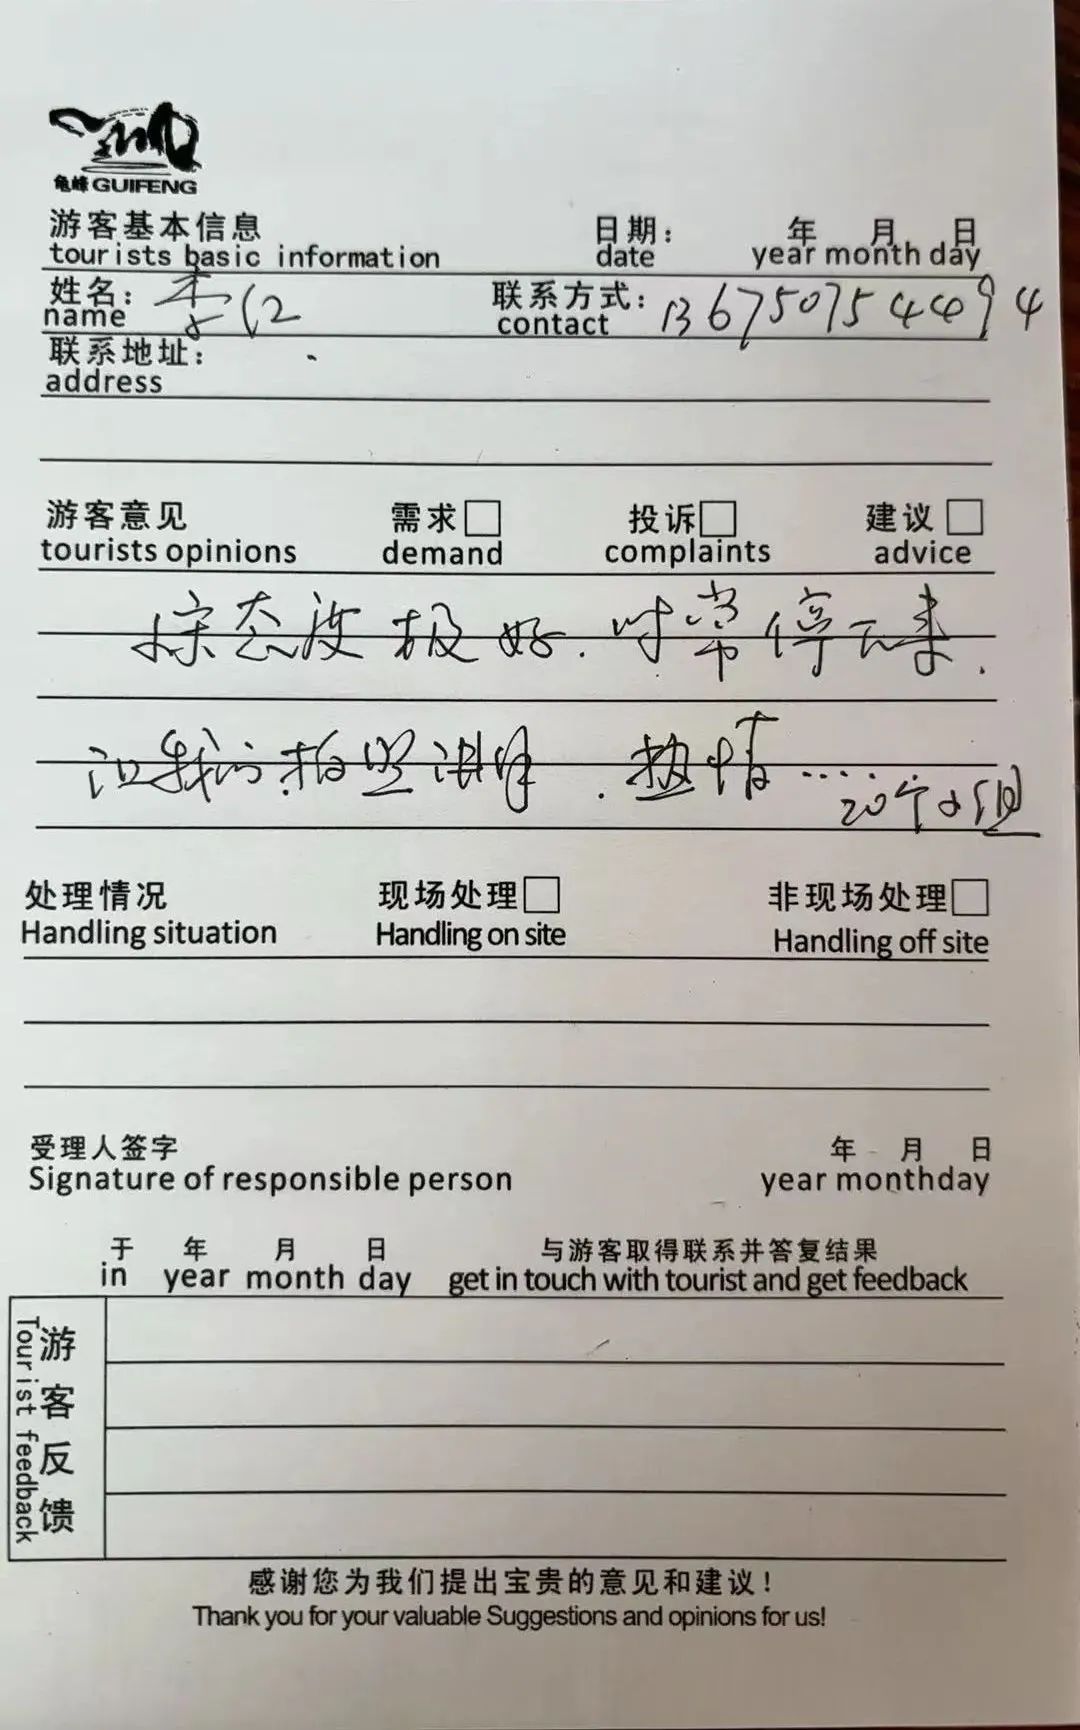 龟峰 GUIFENG
游客基本信息 日期： 年 月 日
tourists basic information date year month day
姓名： 李 联系方式： 136750754494
name contact
联系地址：
address
游客意见 需求 投诉 建议
tourists opinions demand complaints advice
态度极好.时常停下来.
让我们拍照讲解.热情......
20个小组
处理情况 现场处理 非现场处理
Handling situation Handling on site Handling off site
受理人签字 年 月 日
Signature of responsible person year monthday
于 年 月 日 与游客取得联系并答复结果
in year month day get in touch with tourist and get feedback
游客反馈
Tourist feedback
感谢您为我们提出宝贵的意见和建议！
Thank you for your valuable Suggestions and opinions for us!